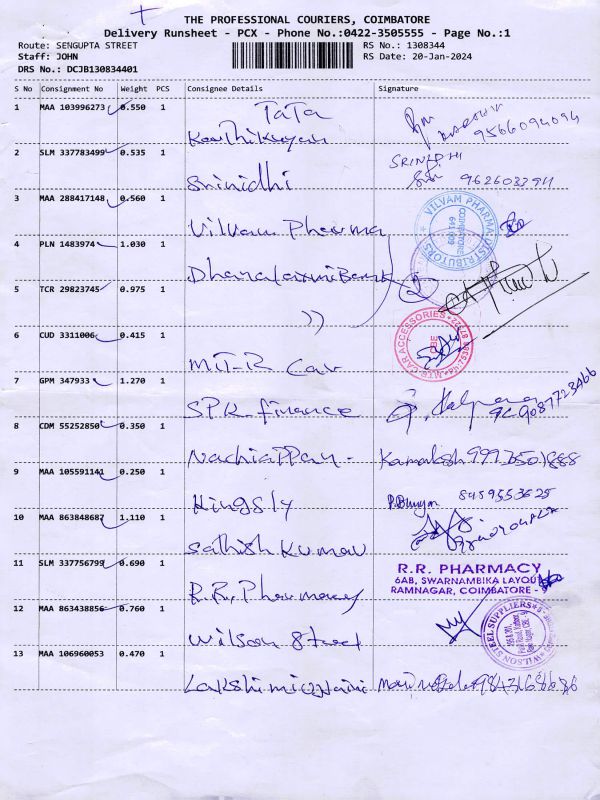 THE PROFESSIONAL COURIERS, COIMBATORE
Delivery Runsheet - PCX - Phone No.:0422-3505555 - Page No.:1
Route: SENGUPTA STREET
RS No.: 1308344
Staff: JOHN
RS Date: 20-Jan-2024
DRS No.: DCJB130834401
S No Consignment No Weight PCS Consignee Details Signature
1 MAA 103996273 0.550 1
TaTa
Karthikeyan
9566094094
2 SLM 337783499 0.535 1
SRINIDHI
Srinidhi
3 MAA 288417148 0.560 1
Vilvam Pharma
VILVAM PHARMA DISTRIBUTORS
COIMBATORE
4 PLN 1483974 1.030 1
Dhanalaxmi Bank
5 TCR 29823745 0.975 1
))
6 CUD 3311006 0.415 1
MTR CAR ACCESSORIES
CBE
MT-R Car
7 GPM 347933 1.270 1
SPK finance
9087723466
8 CDM 55252850 0.350 1
Nachiappan - Kamalesh
9 MAA 105591141 0.250 1
Kingsly
8489553625
10 MAA 863848687 1.110 1
Sathish Kumar
11 SLM 337756799 0.690 1
R.R. Pharmacy
R.R. PHARMACY
6AB, SWARNAMBIKA LAYOUT
RAMNAGAR, COIMBATORE - 9
12 MAA 863438856 0.760 1
Wilson Steel
WILSON STEEL SUPPLIERS
13 MAA 106960053 0.470 1